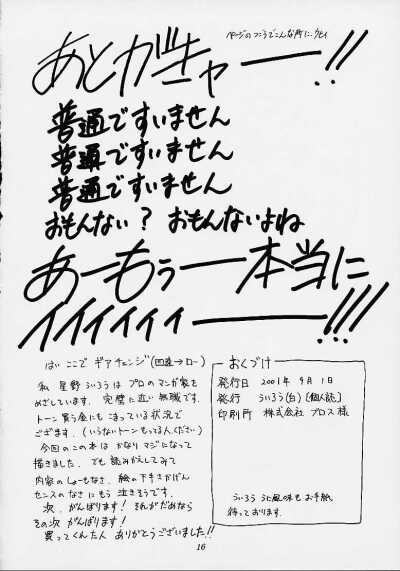 ページのつごうでこんな所に、クセィ
あとがきャー——!!
普通ですいません
普通ですいません
普通ですいません
おもんない? おもんないよね
あーもぅー本当に
イイイイィィ———!!!
はい ここで ギアチェンジ(四速→ロー)
私 星野ういろうは プロのマンガ家を
めざしています。完璧に近い無職です。
トーン買う金にもこまっている状況で
ございます。(いらないトーンもってる人ください)
今回のこの本は かなりマジになって
描きました。でも読みかえしてみて
内容のしょーもなさ、絵の下手さかげん
センスのなさにもう泣きそうです。
次、がんばります! それがだめなら
その次 がんばります!
買ってくれた人 ありがとうございました!!
おくづけ
発行日 2001年 9月 1日
発行 ういろう(白)[個人誌]
印刷所 株式会社 プロス 様
ういろう うに風味も お手紙
待っております。
16